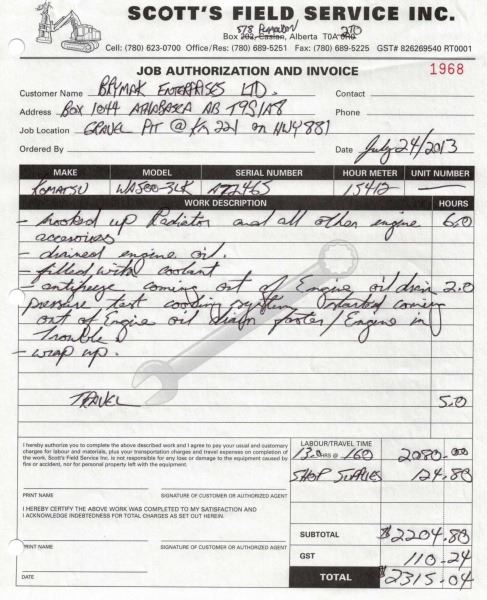 SCOTT'S FIELD SERVICE INC.
Box 202, Caslan, Alberta T0A 0R0
Cell: (780) 623-0700 Office/Res: (780) 689-5251 Fax: (780) 689-5225 GST# 826269540 RT0001
JOB AUTHORIZATION AND INVOICE 1968
Customer Name BAYMAK ENTERPRISES LTD. Contact
Address BOX 1044 ATHABASCA AB T9S1A8 Phone
Job Location GRAVEL PIT @ Km 221 on HWY 881
Ordered By Date July 24/2013
MAKE MODEL SERIAL NUMBER HOUR METER UNIT NUMBER
KOMATSU WA500-3LK 15412 —
WORK DESCRIPTION HOURS
- hooked up Radiator and all other engine 6.0
accessories
- drained engine oil.
- filled with coolant
- antifreeze coming out of Engine oil drain 2.0
pressure test cooling system started coming
out of Engine oil drain faster / Engine in
trouble!
- wrap up.
TRAVEL 5.0
I hereby authorize you to complete the above described work and I agree to pay your usual and customary
charges for labour and materials, plus your transportation charges and travel expenses on completion of
the work. Scott's Field Service Inc. is not responsible for any loss or damage to the equipment caused by
fire or accident, nor for personal property left with the equipment.
LABOUR/TRAVEL TIME
13.0 HRS @ 160 2080.00
SHOP SUPPLIES 124.80
PRINT NAME SIGNATURE OF CUSTOMER OR AUTHORIZED AGENT
I HEREBY CERTIFY THE ABOVE WORK WAS COMPLETED TO MY SATISFACTION AND
I ACKNOWLEDGE INDEBTEDNESS FOR TOTAL CHARGES AS SET OUT HEREIN.
SUBTOTAL $2204.80
PRINT NAME SIGNATURE OF CUSTOMER OR AUTHORIZED AGENT
GST 110.24
DATE
TOTAL $2315.04